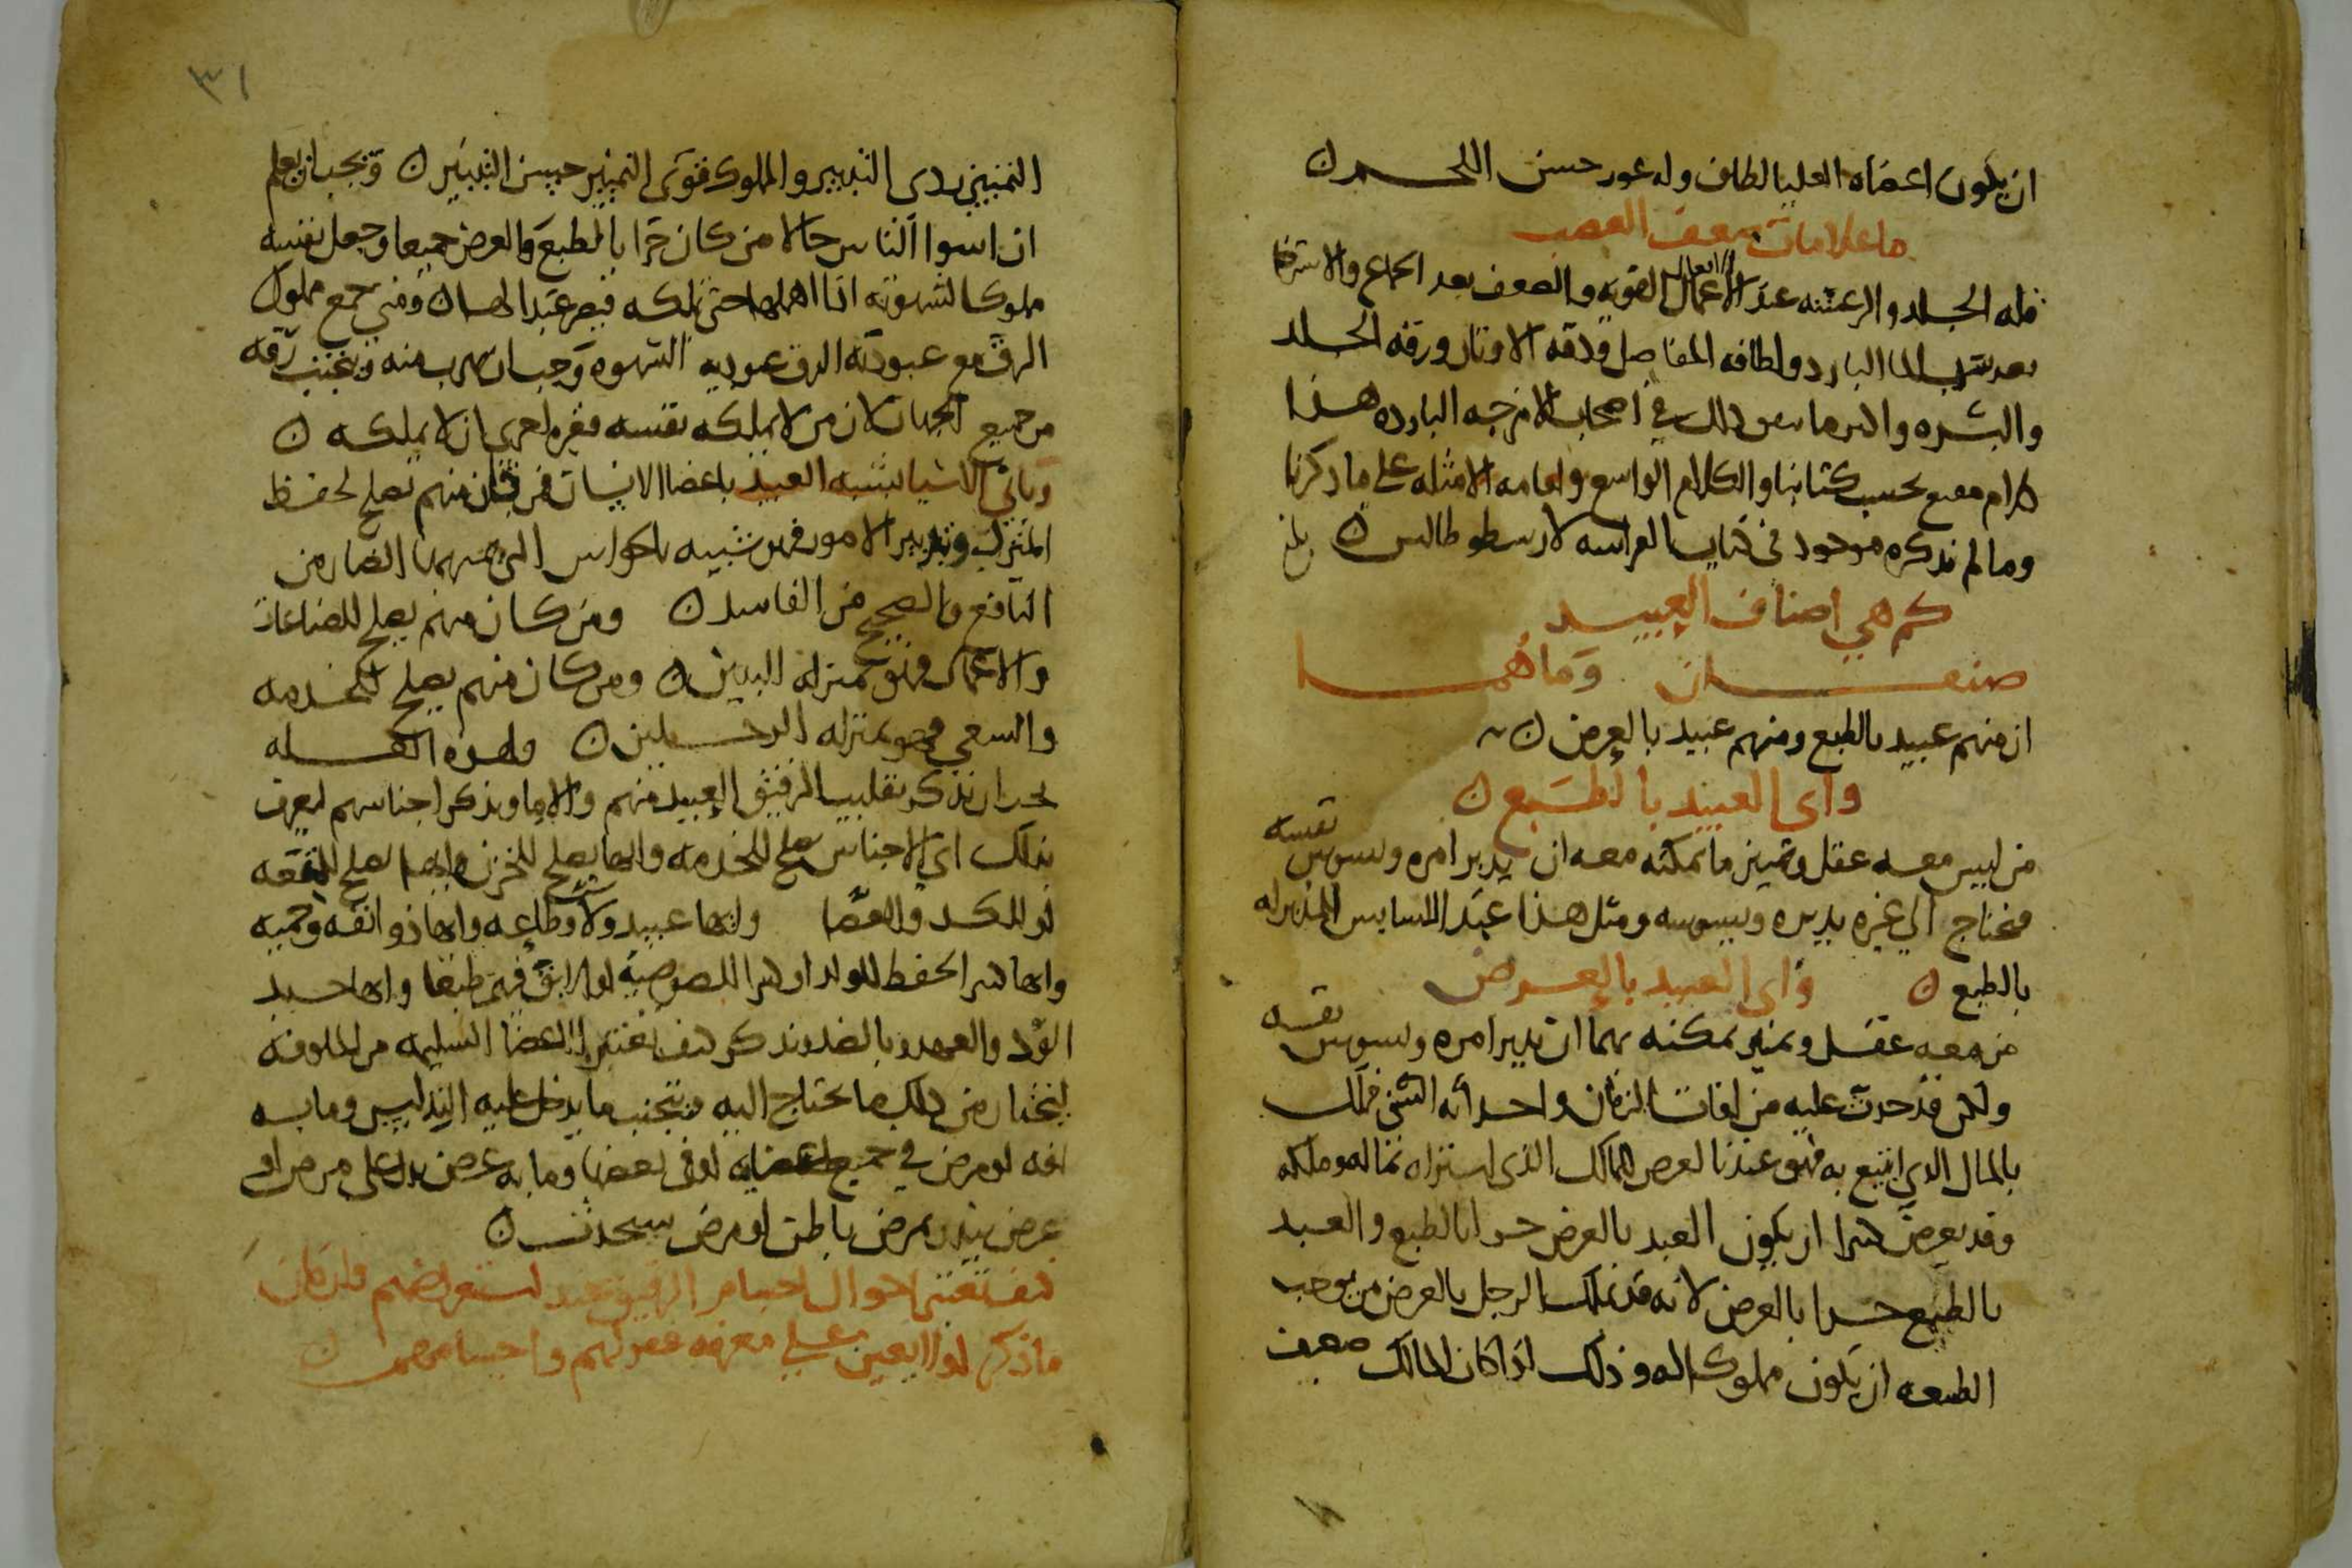 ان يكون اعضاه العليا لطاف وله غور حسن اللحم ن
ما علامات ضعف العصب
قله الجلد والرعشه عند الاعمال القويه والضعف بعد الجماع والاسترخا
بعد شرب الما البارد ولطافه المفاصل ودقه الاوتار ورقه الجلد
والبشره واكثر ما يعرض ذلك في اصحاب الامزجه البارده هذا
كلام مقنع بحسب كتابنا والكلام الواسع واقامه الامثله على ما ذكرنا
وما لم نذكره موجود في كتاب الفراسه لارسطوطاليس ن بلغ
كم هي اصناف العبيد
صنفان وما هما
ان منهم عبيد بالطبع ومنهم عبيد بالعرض ن
واى العبيد بالطبع ن
من ليس معه عقل وتمييز ما يمكنه معه ان يدبر امره ويسوس نفسه
فيحتاج الي غيره يدبره ويسوسه ومثل هذا عبد للسايس المدبر له
بالطبع ن واى العبيد بالعرض
من معه عقل وتميز يمكنه بهما ان يدبر امره ويسوس نفسه
ولكن قد حدث عليه من افات الزمان واحداثه التى تملك
بالمال الذي ابتيع به فهو عبد بالعرض للمالك الذى اشتراه بماله وملكه
وقد يعرض كثيرا ان يكون العبد بالعرض حرا بالطبع والعبد
بالطبع حرا بالعرض لانه قد يملك الرجل بالعرض من يوجب
الطبيعه ان يكون مملوكا له وذلك اذا كان المالك ضعيف
٣١
التمييز ردى التدبير والمملوك قوى التمييز حسن التدبير ن ويجب ان يعلم
ان اسوا الناس حالا من كان حرا بالطبع والعرض جميعا وجعل نفسه
مملوكا لشهوته اذا اهملها حتى تملكه فيصر عبدا لها ن ومتي جمع مملوك
الرق مع عبوديه الرق عبوديه الشهوه وجب ان يهرب منه وتجتنب رقه
من جميع الجهات لان من لا يملكه نفسه فغيره احرى ان لا يملكه ن
وباي الاشيا يشبه العبيد باعضا الانسان فمن كان منهم يصلح لحفظ
المنزل وتدبير الامور فهو شبيه بالحواس التى تميز بها الضار من
النافع والصحيح من الفاسد ن ومن كان منهم يصلح للصناعات
والاعمال فهو بمنزله اليدين ن ومن كان منهم يصلح للخدمه
والسعي فهو بمنزله الرجلين ن ولهذه العله
يجب ان نذكر تقليب الرقيق العبيد منهم والاما ونذكر اجناسهم ليعرف
بذلك اي الاجناس يصلح للخدمه وايها يصلح للخزن وايها يصلح للمتعه
او للكد والعصا وايها عبيد ولا وطاعه وايها ذو انفه وحميه
وايها كثير الحفظ للولد او كثير اللصوصيه او الاباق فيهم طبعا وايها جيد
الود والعهد وبالضد ونذكر كيف تفتش الاعضا السليمه من الماوفه
ليختار من ذلك ما يحتاج اليه وتتجنب ما يدخل عليه التدليس وما به
افه او مرض في جميع اعضايه او في بعضها وما به عرض يدل على مرض او
عرض ينذر بمرض باطن او مرض سيحدث ن
كيف تفتش احوال اجسام الرقيق عند استعراضهم وان كان
ما ذكر اولا يعين علي معرفه عقولهم واجسامهم ن